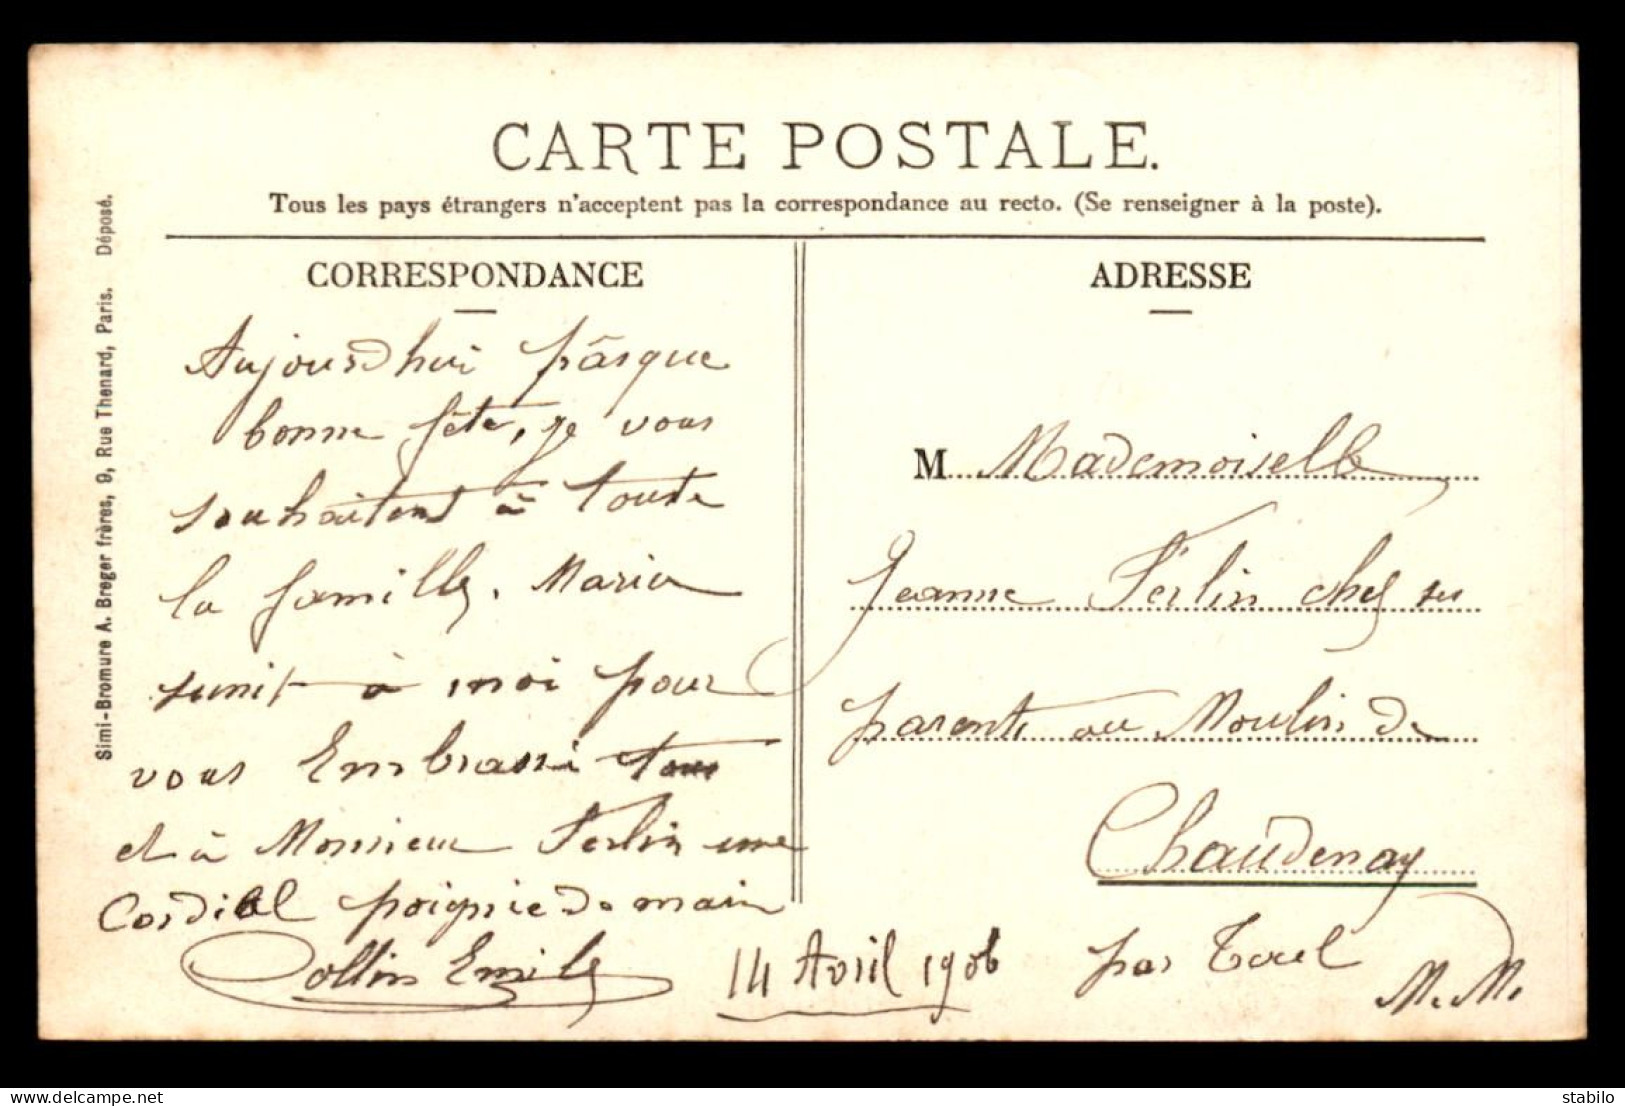 CARTE POSTALE.
Tous les pays étrangers n'acceptent pas la correspondance au recto. (Se renseigner à la poste).
Simi-Bromure A. Breger frères, 9, Rue Thenard, Paris. Déposé.
CORRESPONDANCE
Aujourdhui pâsque
bonne fête, je vous
souhaitent à toute
la famille. Maria
sunit à moi pour
vous Embrassé tous
et à Monsieur Ferlin une
Cordial poignie de main
Collin Emile
14 Avril 1906
ADRESSE
M Mademoiselle
Jeanne Ferlin chez ses
parents au Moulin de
Chaudenay
par Toul
M. M.
Delcampe.net
sebalilo